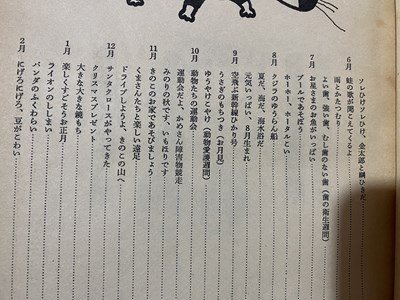 ソレひけソレひけ、金太郎と綱ひきだ
6月 蛙の歌が聞こえてくるよ
雨とかたつむり
7月 よい歯、強い歯、むし歯のない歯（歯の衛生週間）
お星さまのお魚がいっぱい
プールであそぼう
ホーホー、ホータルこい
8月 クジラのゆうらん船
夏だ、海だ、海水浴だ
元気いっぱい、8月生まれ
9月 空飛ぶ新幹線ひかり号
うさぎのもちつき（お月見）
ゆうやけこやけ（動物愛護週間）
10月 動物たちの運動会
運動会だよ、かめさん障害物競走
みのりの秋です、いもほりです
11月 きのこのお家であそびましょう
くまさんたちと楽しい遠足
ドライブしようよ、きのこの山へ
12月 サンタクロースがやってきた
クリスマスプレゼント
大きな大きな鏡もち
1月 楽しくすごそうお正月
ライオンのししまい
パンダのふくわらい
2月 にげろにげろ、豆がこわい